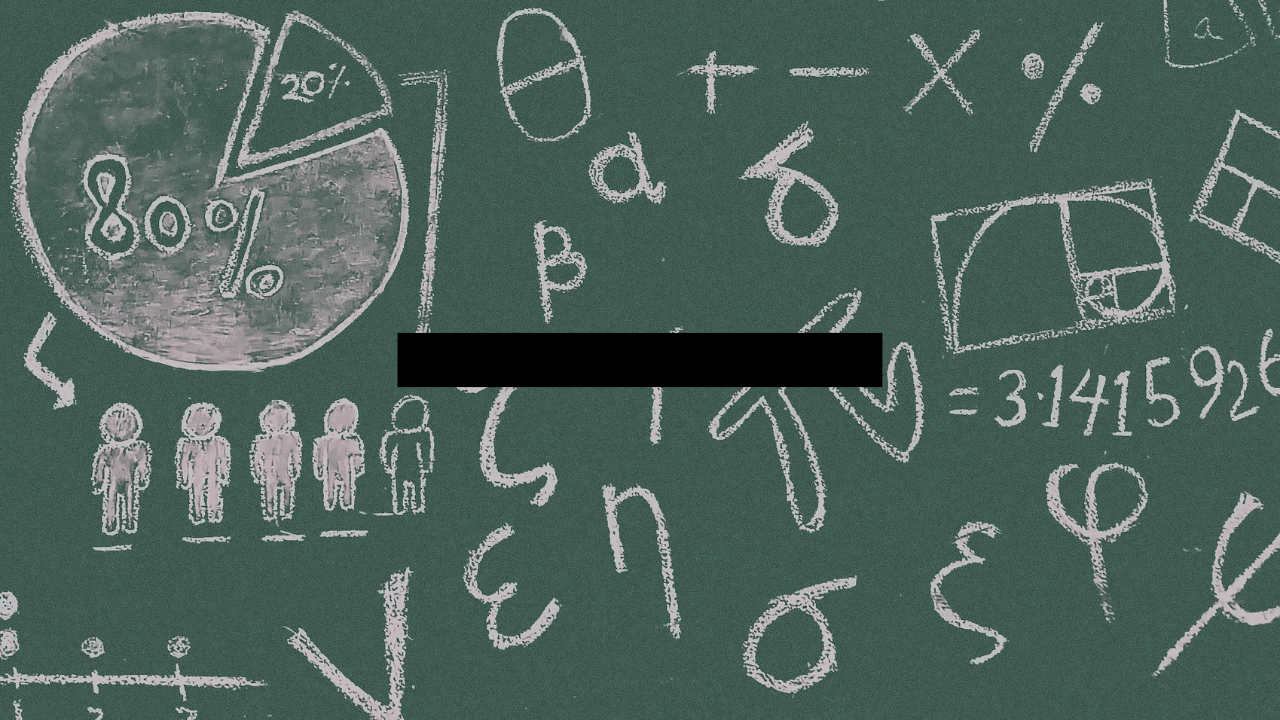 20%
80%
θ + − × %
α δ
β
a
= 3.141592
ζ
η
ε
σ
ξ
φ
ψ
√